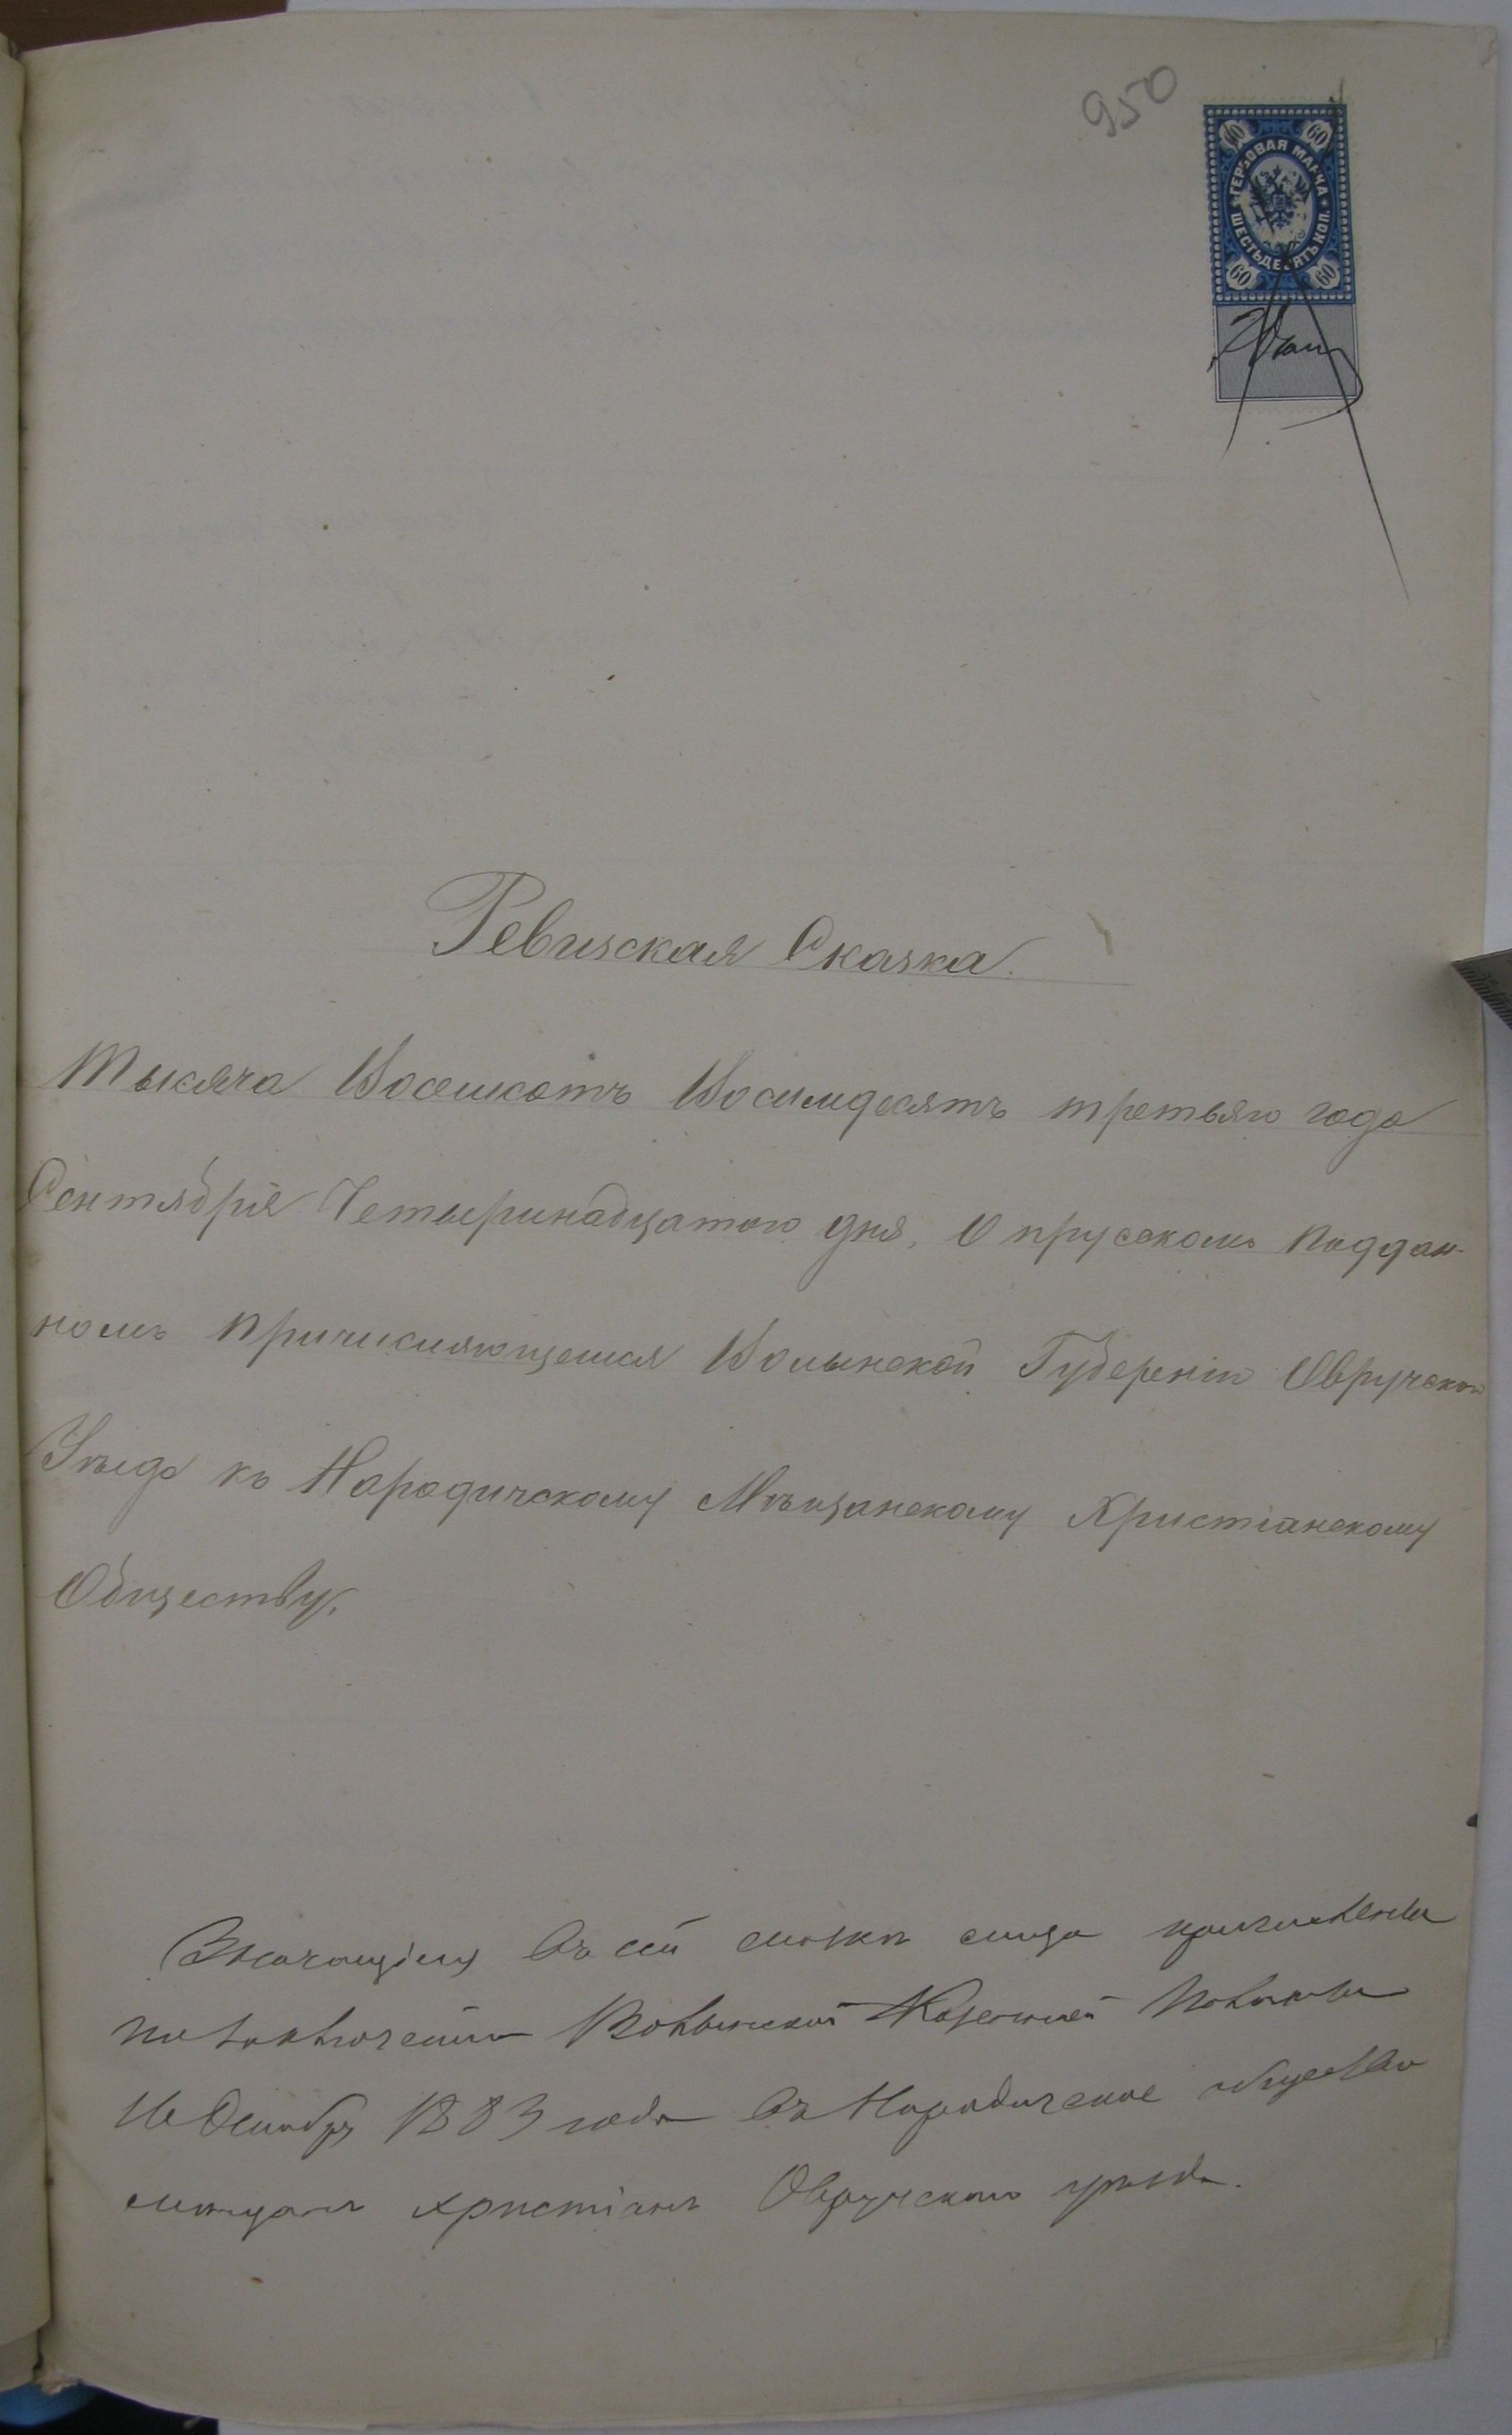 950
60 60
ГЕРБОВАЯ МАРКА
ШЕСТЬДЕСЯТЪ КОП.
60 60
Ревизская Сказка.
Тысяча Восемсотъ Восимдесятъ третьяго года
Сентябрія Четыринадцатого дня, О прусскомъ поддан-
номъ причисляющемся Волынской Губерніи Овручского
Уѣзда къ Народичскому Мѣщанскому Христіанскому
Обществу.
Значащіися въ сей сказкѣ лица причислены
по заключенію Волынской Казенной Палаты
Декабря 1883 года въ Народичское общество
мѣщанъ христіанъ Овручскаго уѣзда.